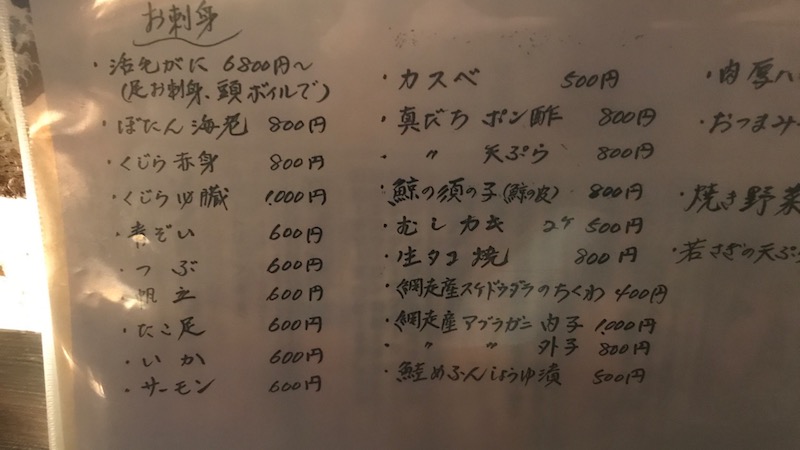 お刺身
・活毛がに 6800円〜
(足お刺身、頭ボイルで)
・ぼたん海老 800円
・くじら赤身 800円
・くじら心臓 1,000円
・青ぞい 600円
・つぶ 600円
・帆立 600円
・たこ足 600円
・いか 600円
・サーモン 600円
・カスベ 500円
・真だち ポン酢 800円
・ 〃 天ぷら 800円
・鯨の須の子(鯨の皮) 800円
・むしカキ 2ケ 500円
・生タコ焼 800円
・網走産スケトウダラのちくわ 400円
・網走産アブラガニ 内子 1,000円
・ 〃 〃 外子 800円
・鮭めふんしょうゆ漬 500円
・肉厚ハ
・おつまみ
・焼き野菜
・若さぎの天ぷら